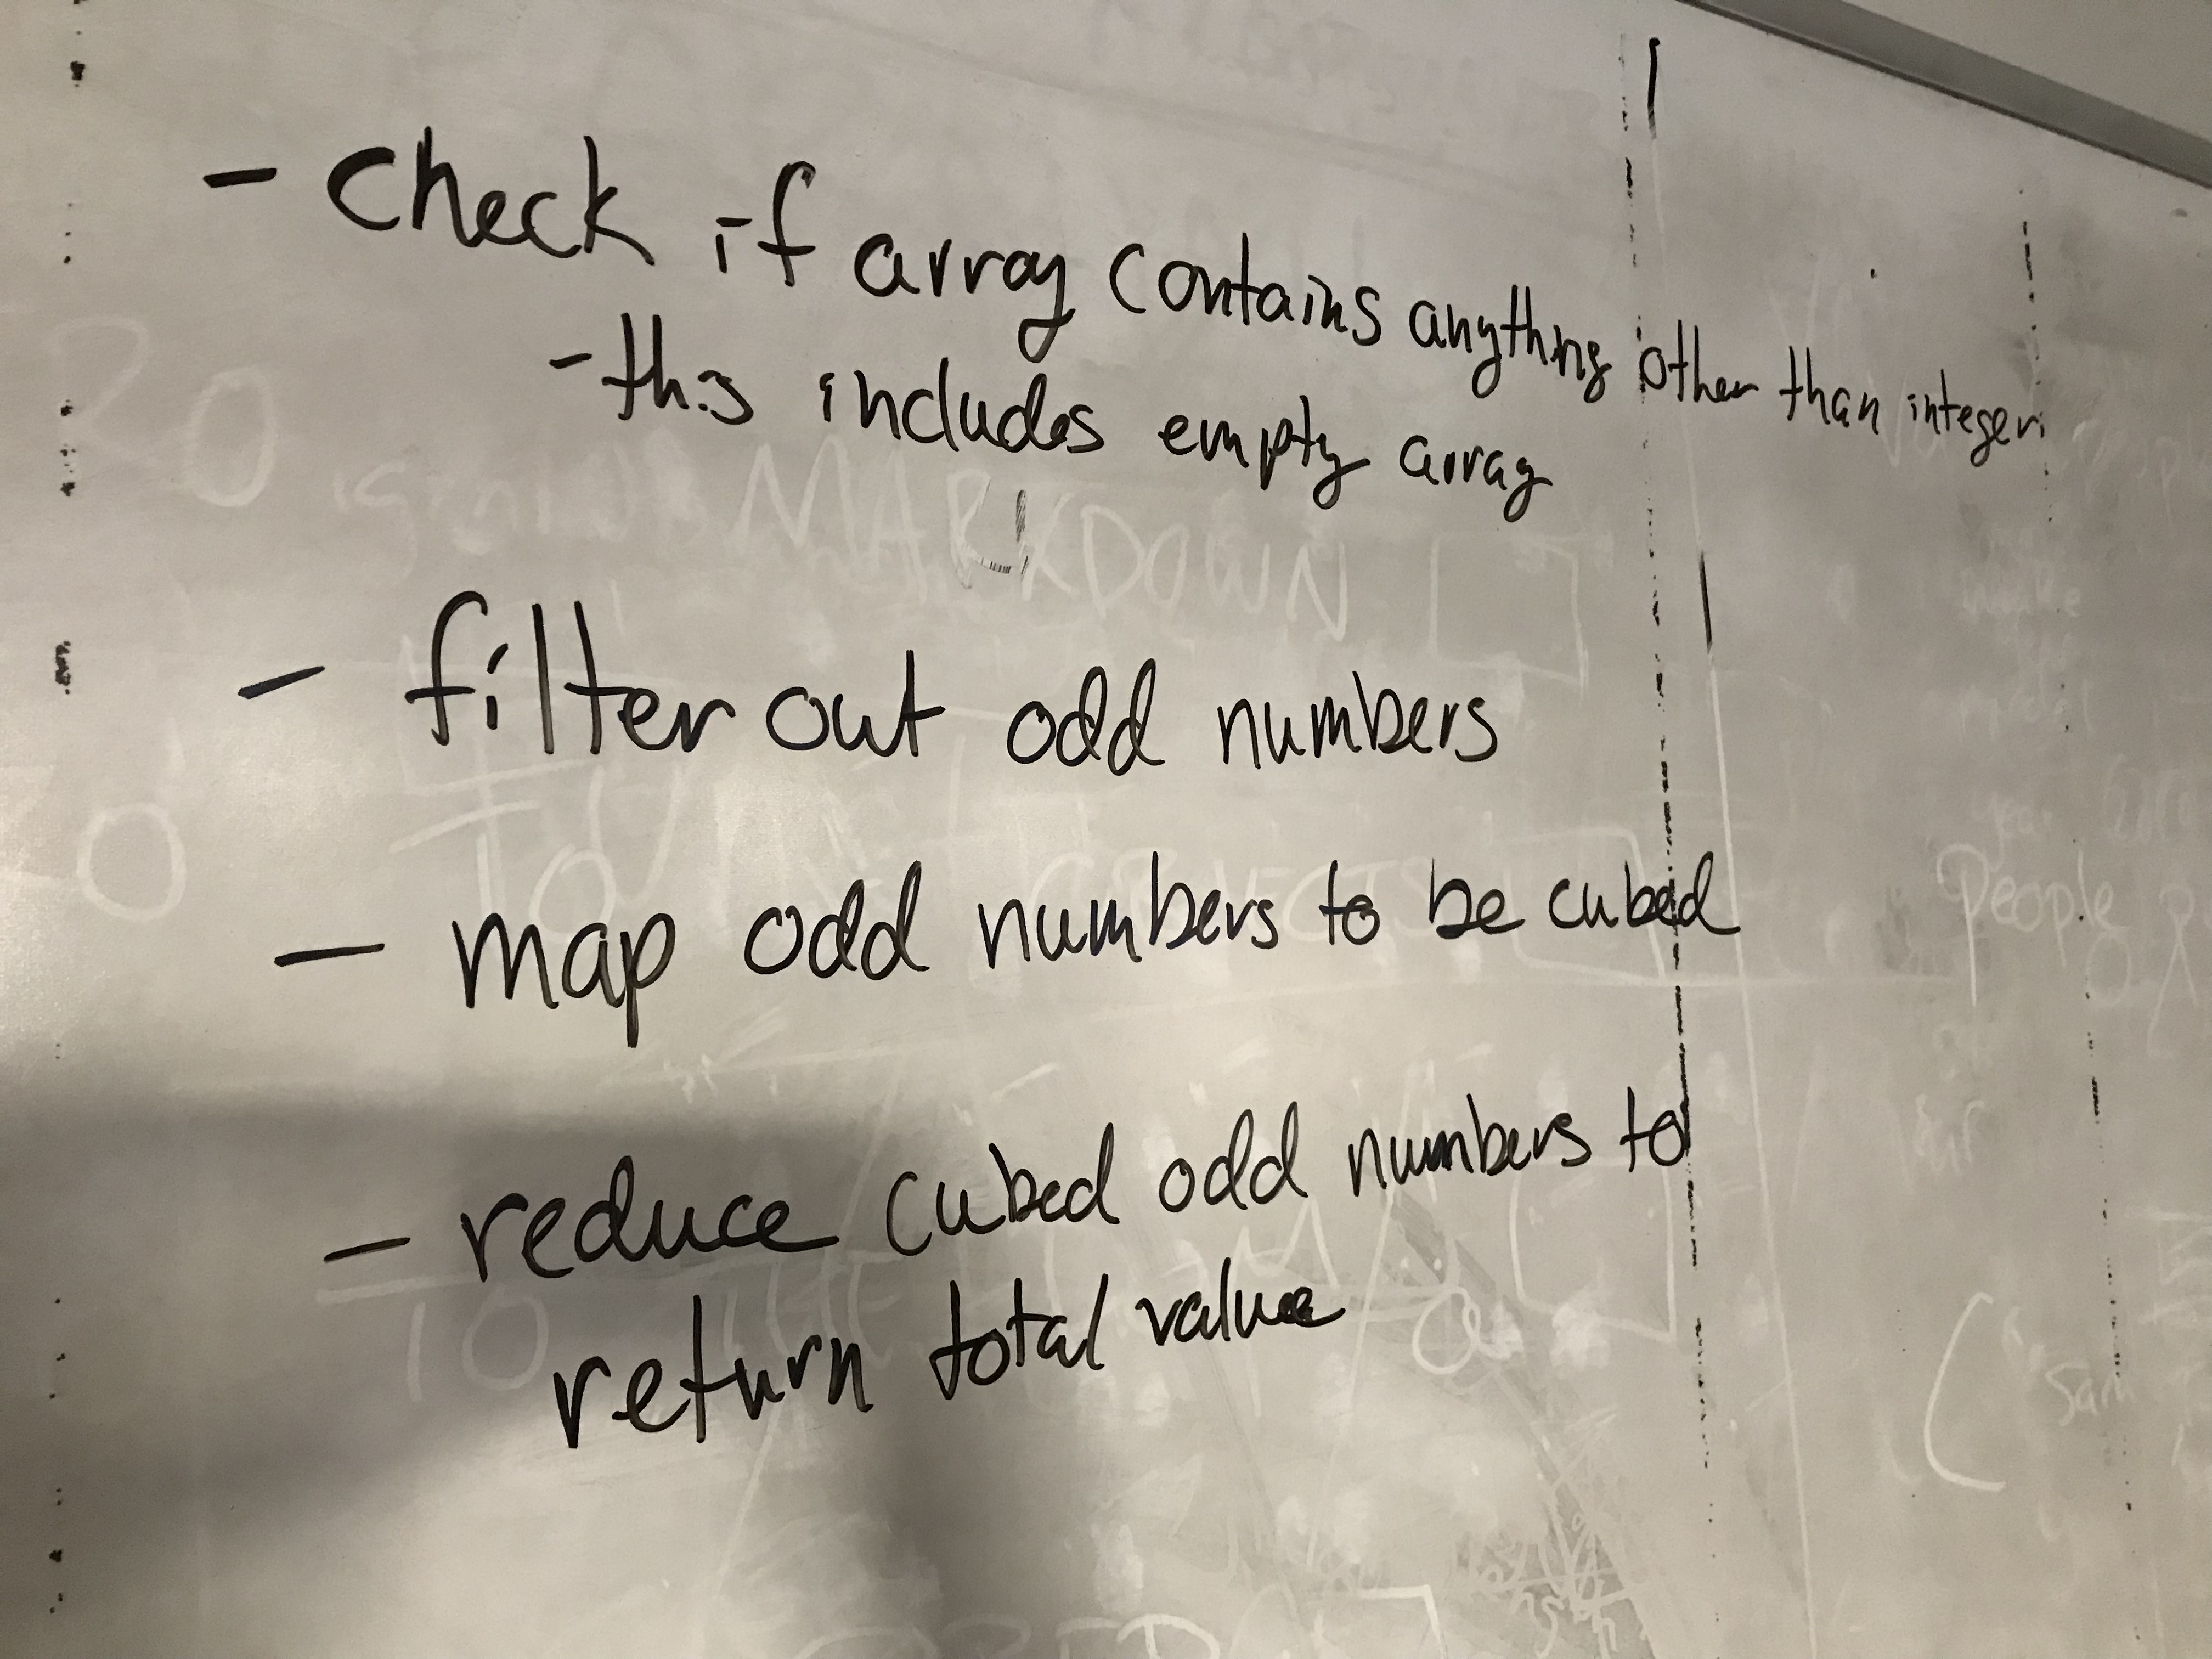 - check if array contains anything other than integers
- this includes empty array
MARKDOWN
- filter out odd numbers
- map odd numbers to be cubed
People
- reduce cubed odd numbers to
return total value